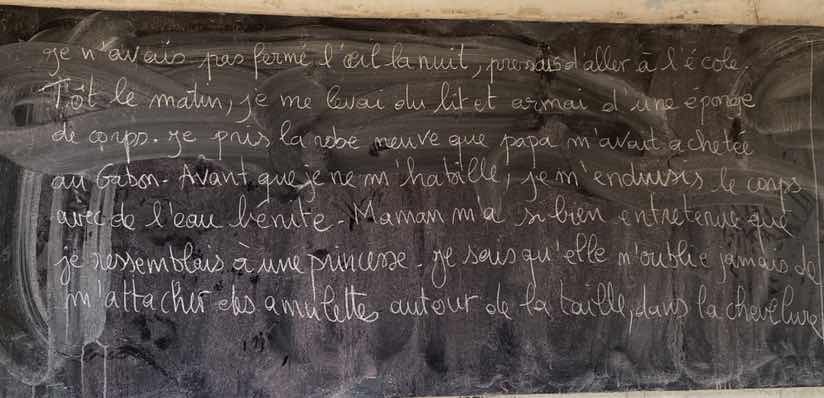 je n'avais pas fermé l'œil la nuit, pressais d'aller à l'école.
Tôt le matin, je me levai du lit et armai d'une éponge
de corps. je pris la robe neuve que papa m'avait achetée
au Gabon. Avant que je ne m'habille, je m'enduisis le corps
avec de l'eau bénite. Maman m'a si bien entretenue que
je ressemblais à une princesse. je sais qu'elle n'oublie jamais de
m'attacher des amulettes autour de la taille, dans la chevelure